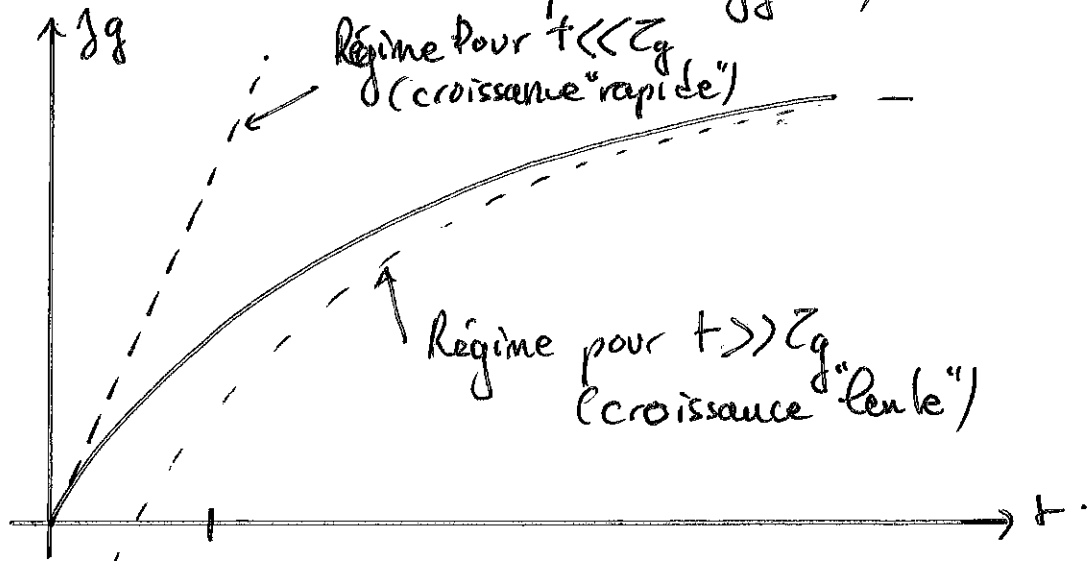 zg
Régime Pour t<<τg
(croissance "rapide")
Régime pour t>>τg
(croissance "lente")
t